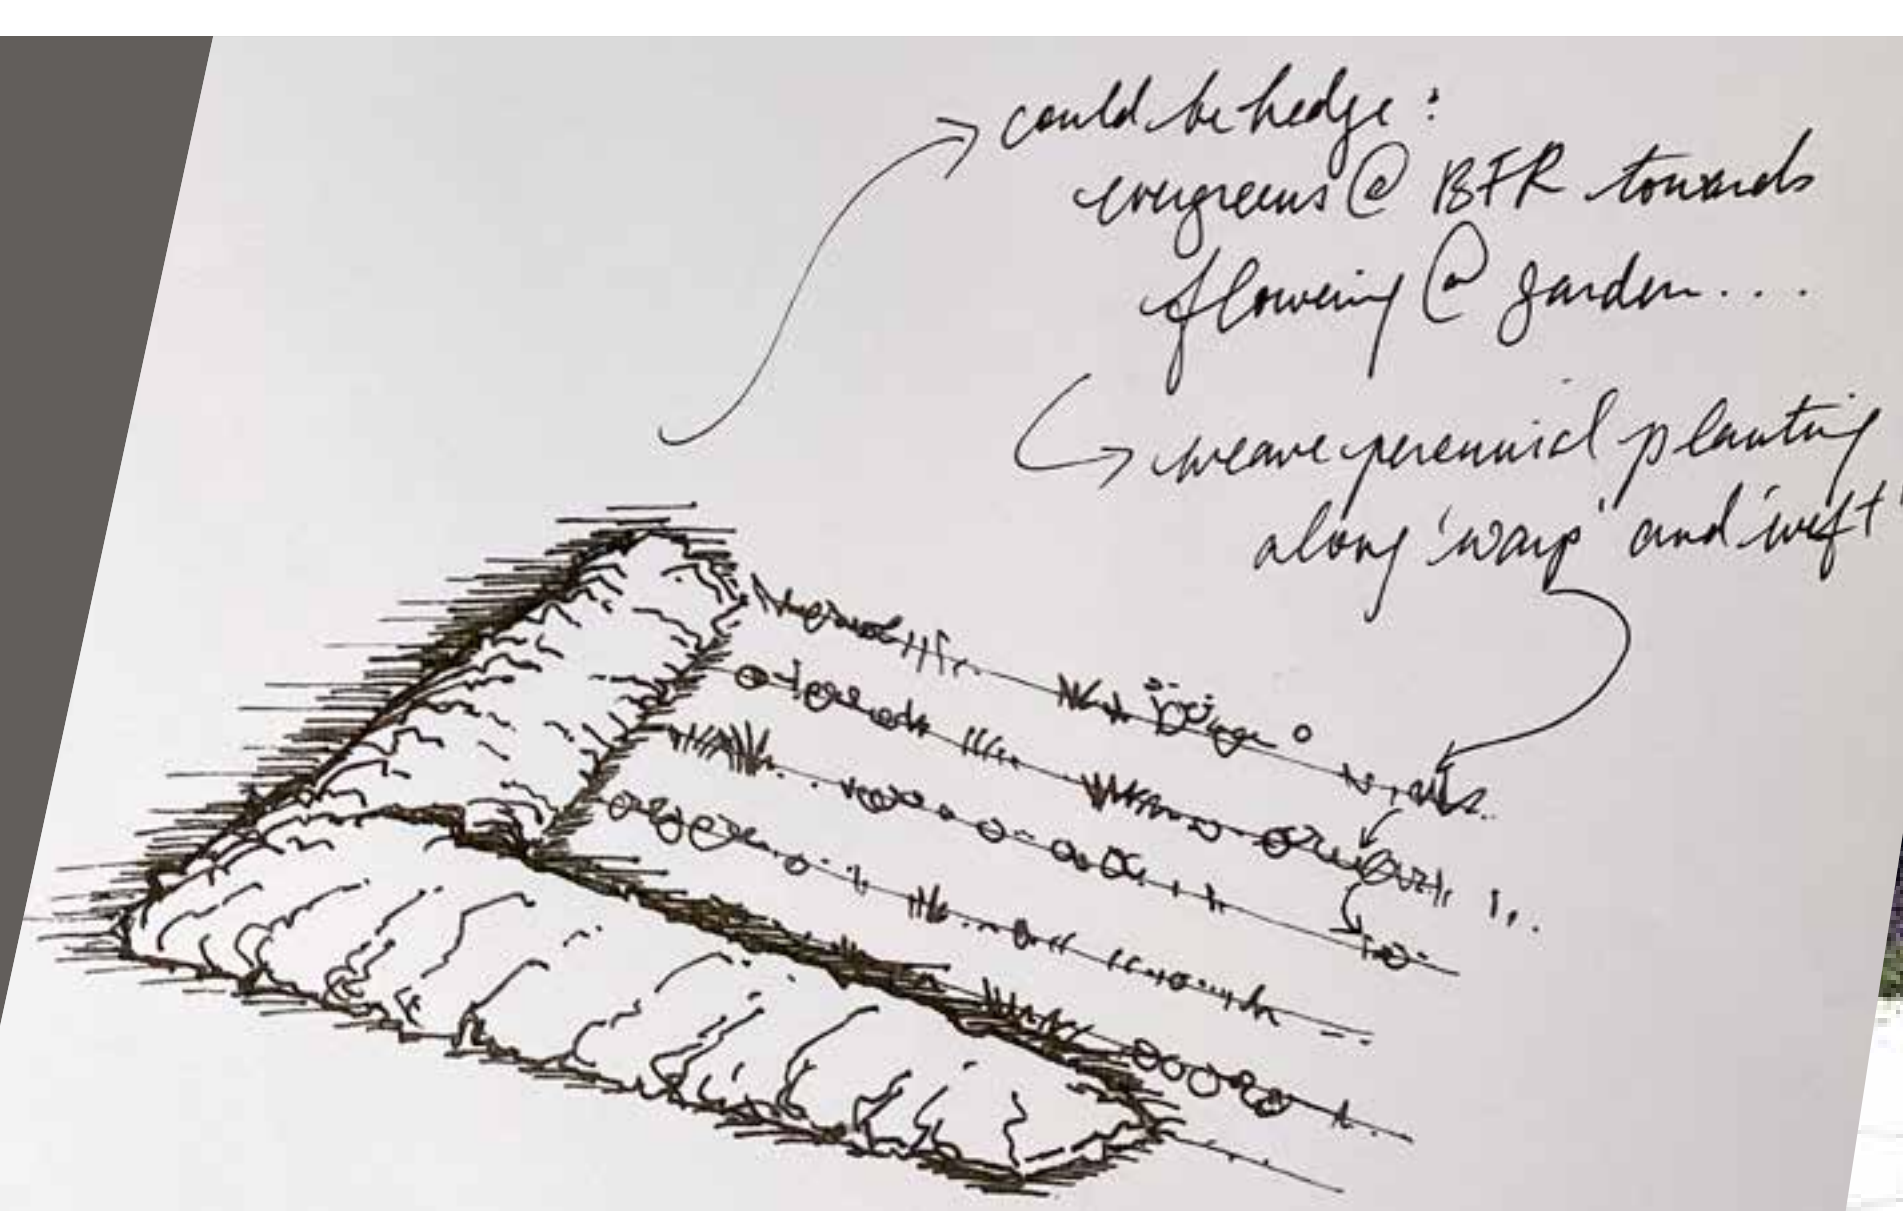 could be hedge:
evergreens @ BFR towards
flowering @ garden....
weave perennial planting
along 'warp' and 'weft'